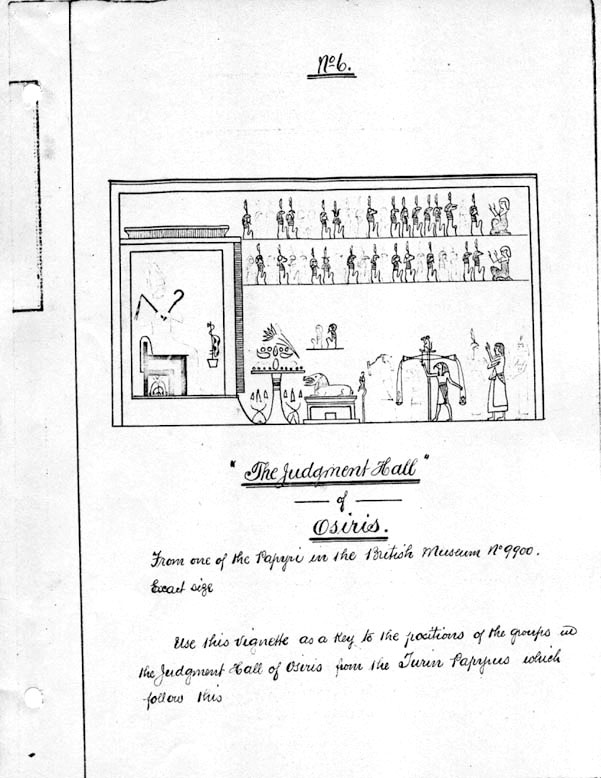 No 6.
"The Judgment Hall"
of
Osiris.
From one of the Papyri in the British Museum No 9900.
Exact size
Use this vignette as a key to the positions of the groups in
the Judgment Hall of Osiris from the Turin Papyrus which
follow this